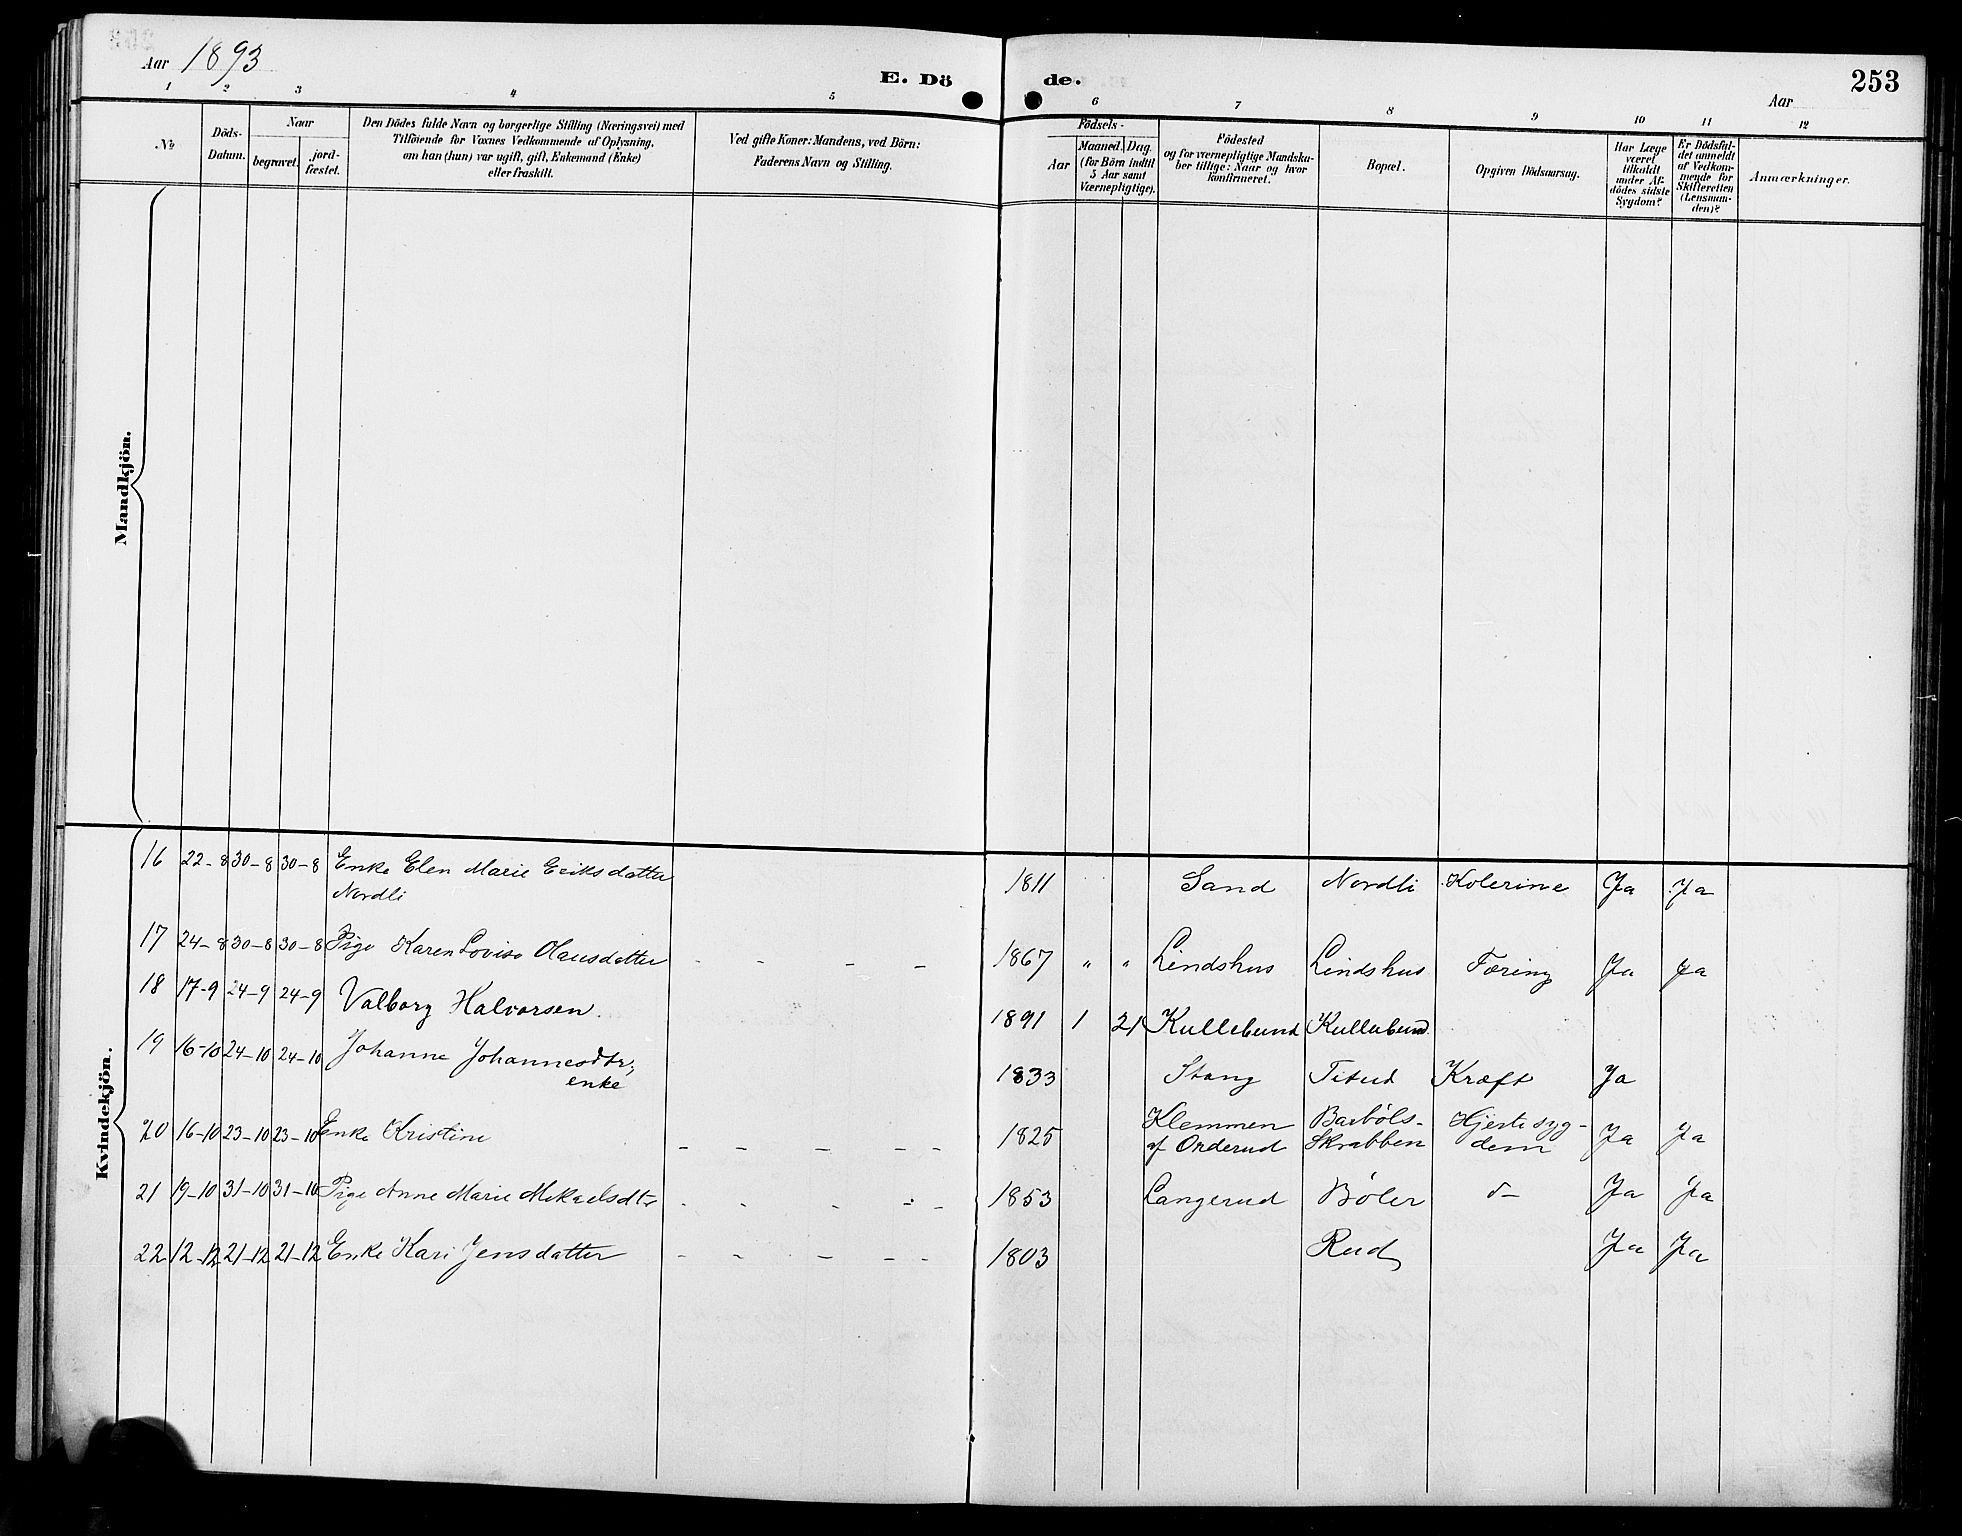 Aar 1893
E. Dö de.
253
Aar
1 2 3 4 5 6 7 8 9 10 11 12
No
Döds-Datum.
Naar
begravet.
jord-fæstet.
Den Dödes fulde Navn og borgerlige Stilling (Næringsvei) med
Tilföiende for Voxnes Vedkommende af Oplysning,
om han (hun) var ugift, gift, Enkemand (Enke)
eller fraskilt.
Ved gifte Koner: Mandens, ved Börn:
Faderens Navn og Stilling.
Födsels-
Aar
Maaned. Dag.
(for Börn indtil
5 Aar samt
Værnepligtige).
Födested
og for værnepligtige Mandska-
ber tillige: Naar og hvor
konfirmeret.
Bopæl.
Opgiven Dödsaarsag.
Har Læge
været
tilkaldt
under Af-
dödes sidste
Sygdom?
Er Dödsfal-
det anmeldt
af Vedkom-
mende for
Skifteretten
(Lensman-
den)?
Anmærkninger.
Mandkjön.
Kvindekjön.
16 22-8 30-8 30-8 Enke Elen Marie Eriksdatter
Nordli
1811 Sand Nordli Kolerine Ja Ja
17 24-8 30-8 30-8 Pige Karen Lovise Olausdatter - - - - 1867 " " Lindshus Lindshus Tæring Ja Ja
18 17-9 24-9 24-9 Valborg Halvorsen. 1891 1 21 Kullebund Kullebund
19 16-10 24-10 24-10 Johanne Johannesdtr,
enke
1833 Stang Kræft Ja
20 16-10 23-10 23-10 Enke Kristine - - - - - 1825 Klemmen
af Orderud
Skrabben
Hjertesyg-
dom
Ja Ja
21 19-10 31-10 31-10 Pige Anne Marie Mikaelsdtr - - - - - 1853 Langerud Bøler d- Ja Ja
22 12-12 21-12 21-12 Enke Kari Jensdatter - - - - - 1803 Rud Ja Ja